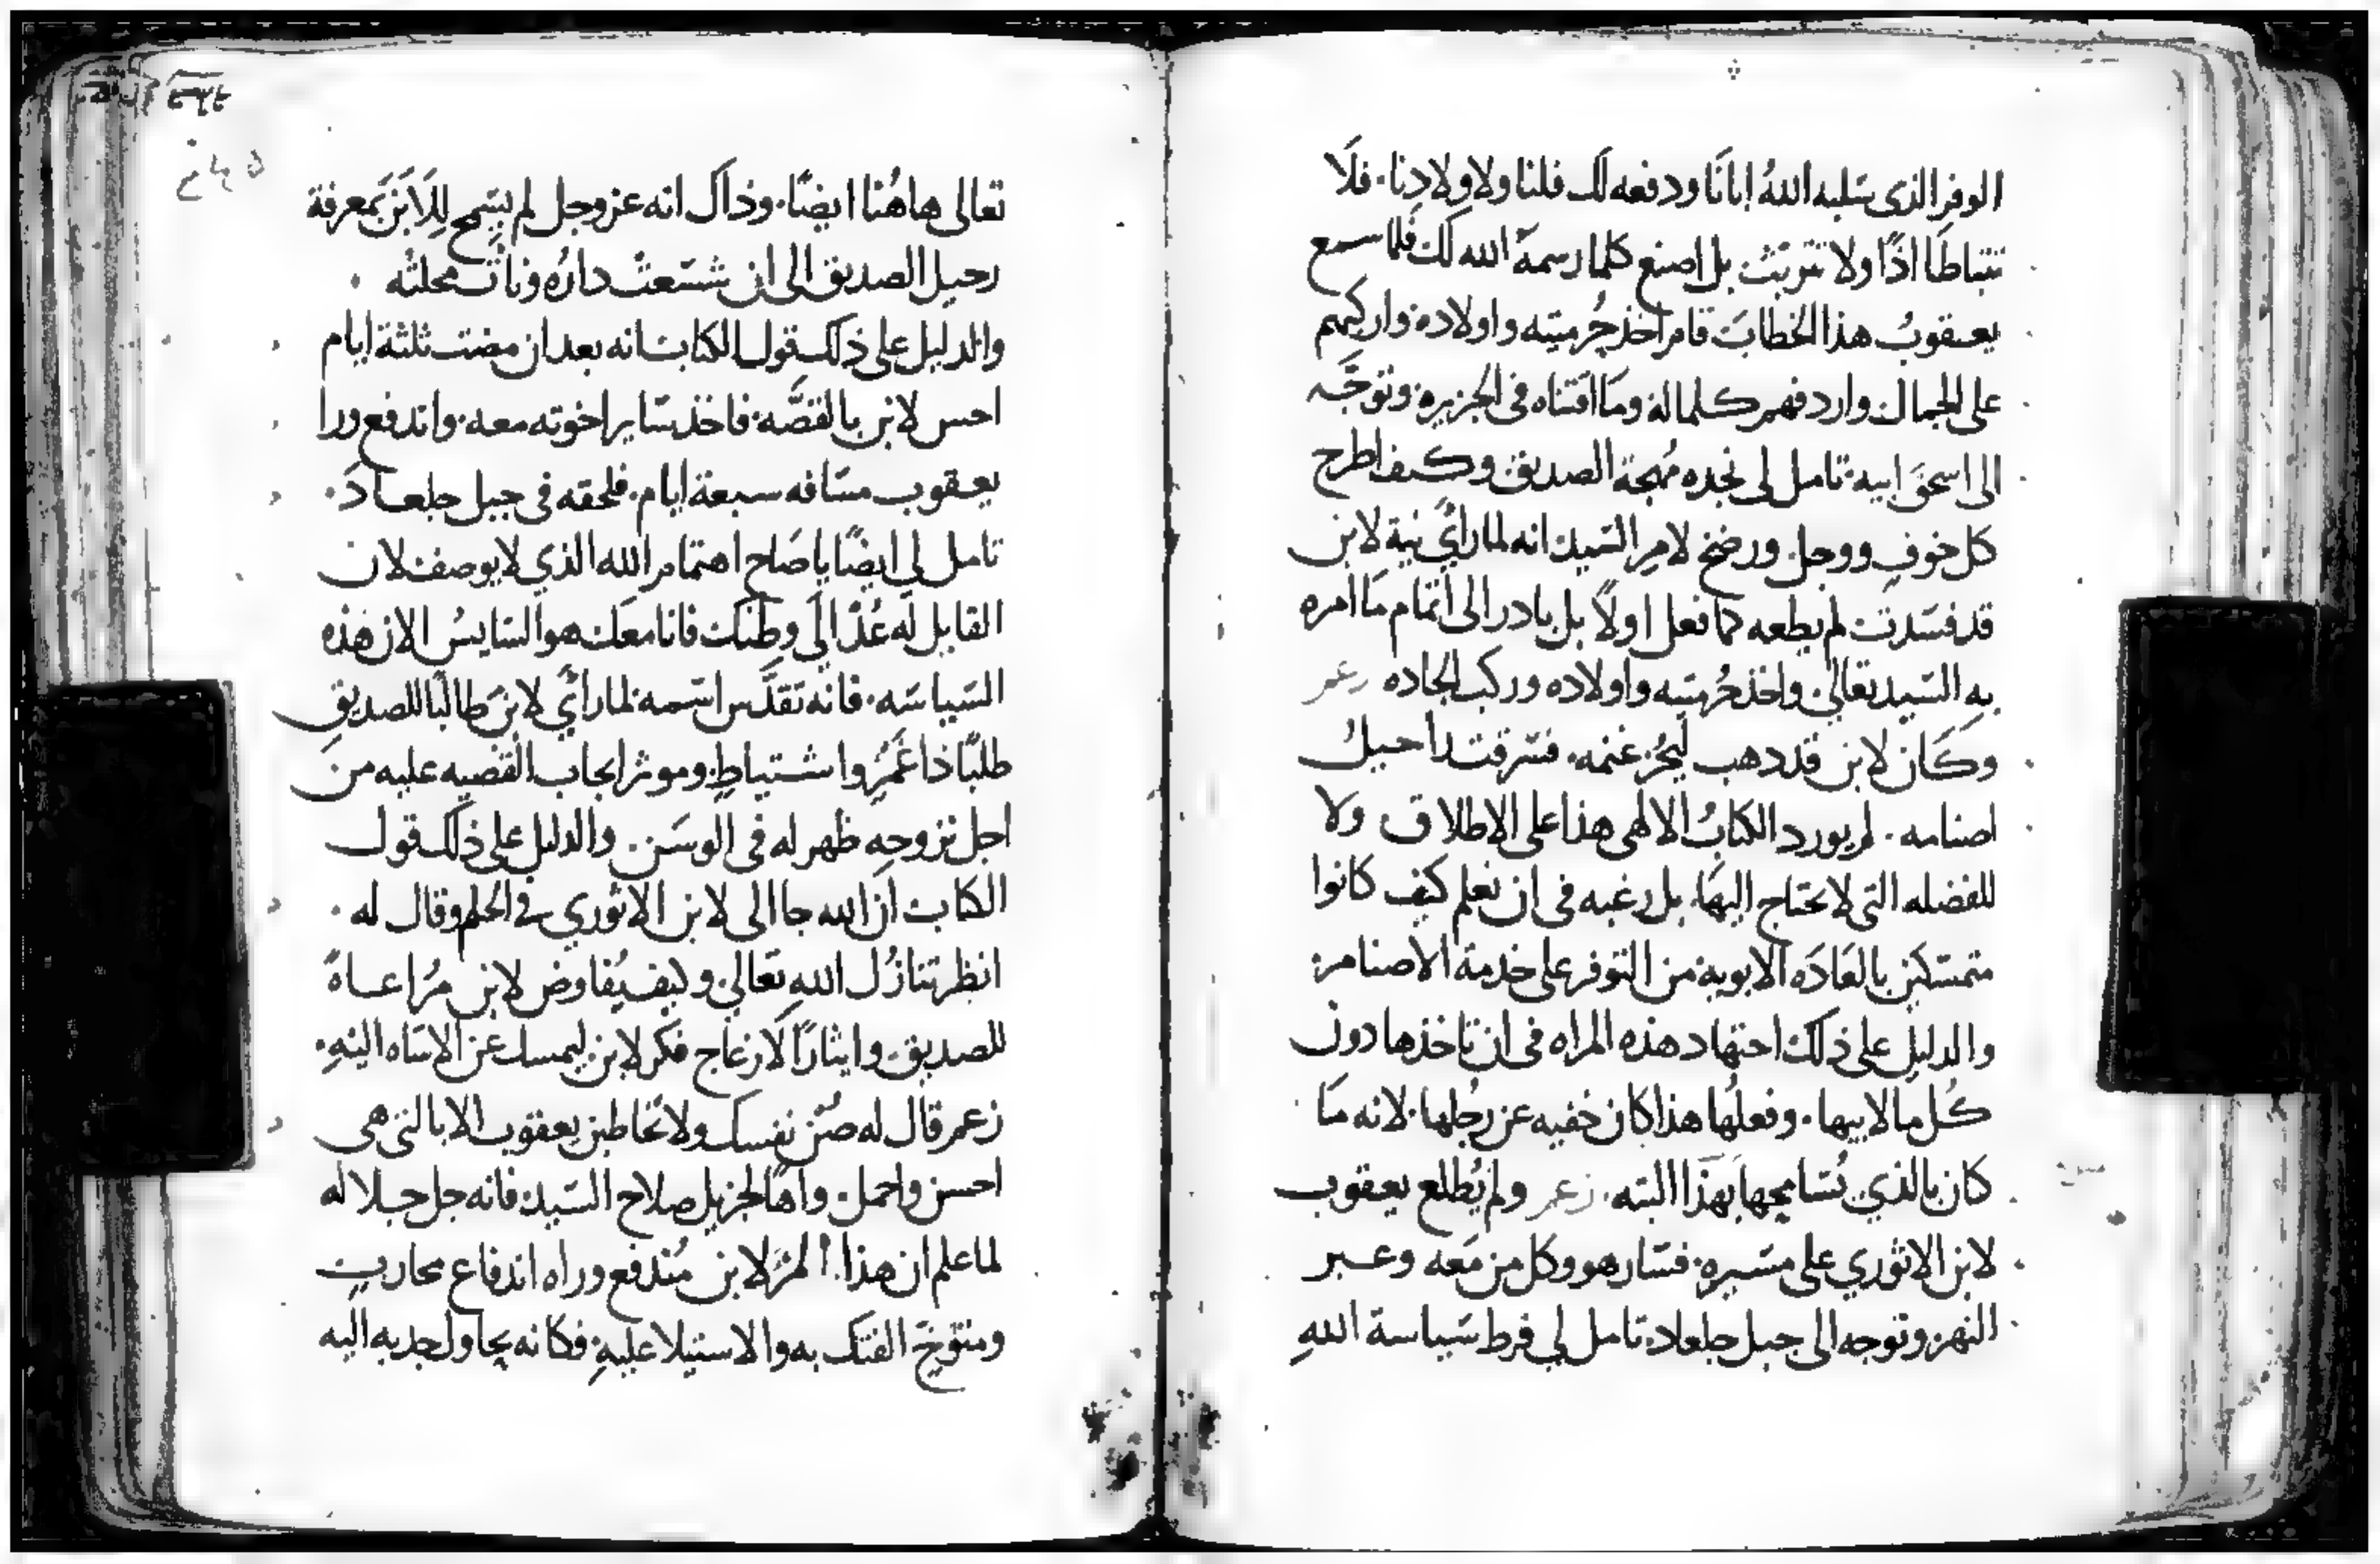 الوفر الذى سَلبه اللهُ ابانَا ودفعه لك فلنا ولاولادِنا. فلَا
تتباطَا اذًا ولا تتربث بل اصنع كلما رسمهُ الله لك فلما سمع
يعقوبُ هذا الخطابَ قام اخذ حُرميته واولاده. واركبهم
على الجمال وارد فهم كلما له وما اقتناه فى الجزيره وتوجَّه
الى اسحقَ ابيه. تامل لى نجده مُهجة الصديق وكيف اطرح
كل خوفٍ ووجل ورضخ لامرِ السَيد. انه لما رأيَ نية لابن
قد فسَدت لم يطعه كما فعل اولاً بل بادر الى اتمام ما امره
به السَيد تعالى. واخذ حُرميته واولاده وركب الجاده زعم
وكَان لابن قد دهب ليجُز غنمه. فسَرقت راحيلُ
اصنامه. لم يورد الكتابُ الالهى هذا على الاطلاق ولا
للفضله التى لا يحتاج اليهَا. بل رغبه فى ان نعلم كيف كانوا
متمسَكين بالعَادَه الابوية من التوفر على خدمة الاصنام
والدليل على ذلك اجتهاد هذه المراه فى ان تاخذها دون
كُل ما لابيها. وفعلُها هذا كان خفيه عن رجُلها. لانه مَا
كان بالذي يُسَامِحها بهَذا البته. زعم ولم يُطلع يعقوب
لابن الاثوري على مسَيره. فسَار هو وكل من معَه وعبر
النهر وتوجه الى جبل جلعاد. تامل لي فرط سَياسة اللهِ
تعالى هاهُنا ايضًا. وذاك انه عز وجل لم يَسَمح للابَن بمَعرفة
رحيل الصديق الى ان شسَعتْ دارُه ونات محلتُه .
والدليل على ذلك قول الكتاب انه بعد ان مضت ثلثة ايام
احس لابن بالقصَّه. فاخذ سَاير اخوته معه. واندفع ورا
يعقوب مسَافه سبعة ايام. فلحقه فى جبل جلعادَ.
تامل لي ايضًا ياصَاح اهتمام الله الذي لا يوصف لان
القايل له عُدْ الى وطنك فانا معَك هو السَايسُ الان هذه
السَياسَه. فانه تقدَّس اسَمه لما رأيَ لابنَ طالبًا للصديقِ
طلبًا ذا غمَرٍ واشتياطٍ وموثر ايجاب القضيه عليه من
اجل نزوحِه ظهر له فى الوسَن. والدليل على ذلك قول
الكتاب ان الله جا الى لابن الاثوري فى الحلم وقال له .
انظر تنازُل اللهِ تعَالى وكيف يُفاوض لابن مُراعاةً
للصديق. وايثارًا لازعاج فكر لابن ليمسك عن الاسَاه اليهِ.
زعم قال له صُنْ نفسك ولا تخاطبن يعقوب الا بالتى هى
احسن واجمل. واهًا لجزيل صلاح السَيد فانه جل جلاله
لما علم ان هذا لابن مُندفع وراه اندفاع محاربٍ
ومتوخٍّ الفتك به والاستيلا عليهِ. فكانه يحاول جذبه اليه